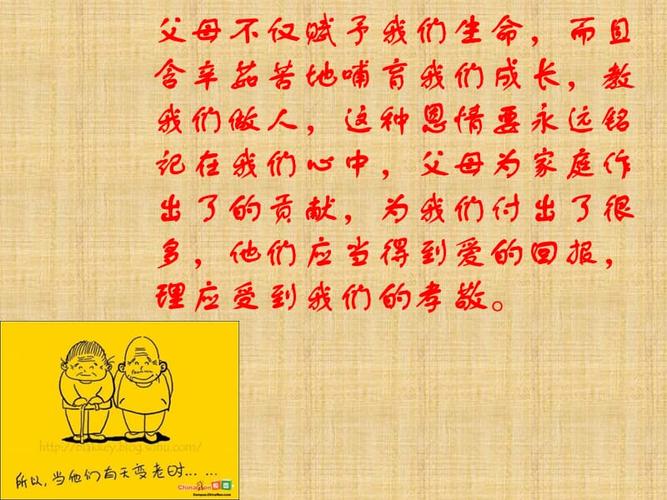 父母不仅赋予我们生命，而且
含辛茹苦地哺育我们成长，教
我们做人，这种恩情要永远铭
记在我们心中，父母为家庭作
出了的贡献，为我们付出了很
多，他们应当得到爱的回报，
理应受到我们的孝敬。
所以,当他们有天变老时……